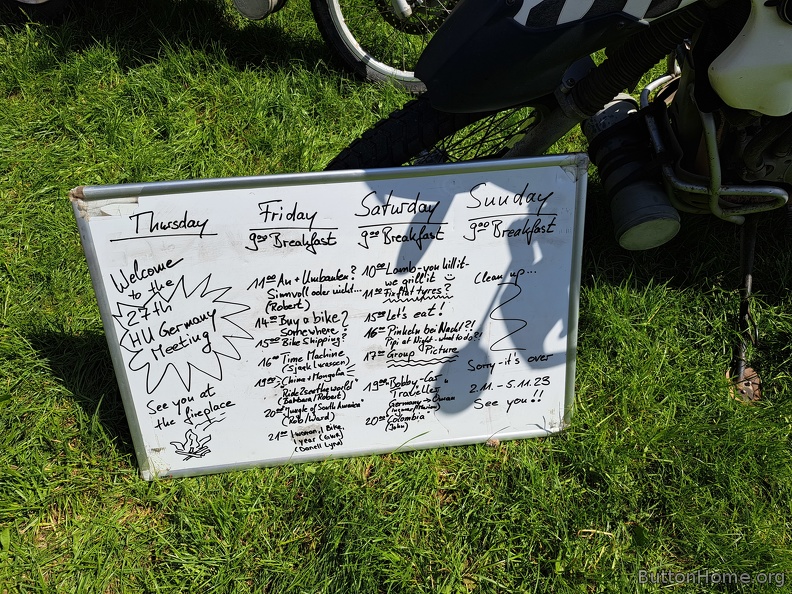 Thursday
Welcome
to the
27th
HU Germany
Meeting
See you at
the fireplace
Friday
9⁰⁰ Breakfast
11⁰⁰ An + Umbauten?
Sinnvoll oder nicht...
(Robert)
14⁰⁰ Buy a bike?
Somewhere?
15⁰⁰ Bike Shipping?
16⁰⁰ Time Machine
19⁰⁰ "China + Mongolia"
"Ride2seetheworld"
(Barbara/Robert)
20⁰⁰ "Jungle of South America"
(Rob/Ward)
21⁰⁰ 1 woman, 1 Bike,
1 year
(Danell Lynn)
Saturday
9⁰⁰ Breakfast
10⁰⁰ Lamb - you kill it -
we grill it
11⁰⁰ Fix flat tyres?
15⁰⁰ Let's eat!
16⁰⁰ Pinkeln bei Nacht?!
Pipi at Night - what to do?!
17⁰⁰ Group Picture
19⁰⁰ "Bobby-Car"
Traveller
Germany → Oman
20⁰⁰ Colombia
(John)
Sunday
9⁰⁰ Breakfast
Clean up...
Sorry - it's over
2.11. - 5.11.23
See you!!
ButtonHome.org